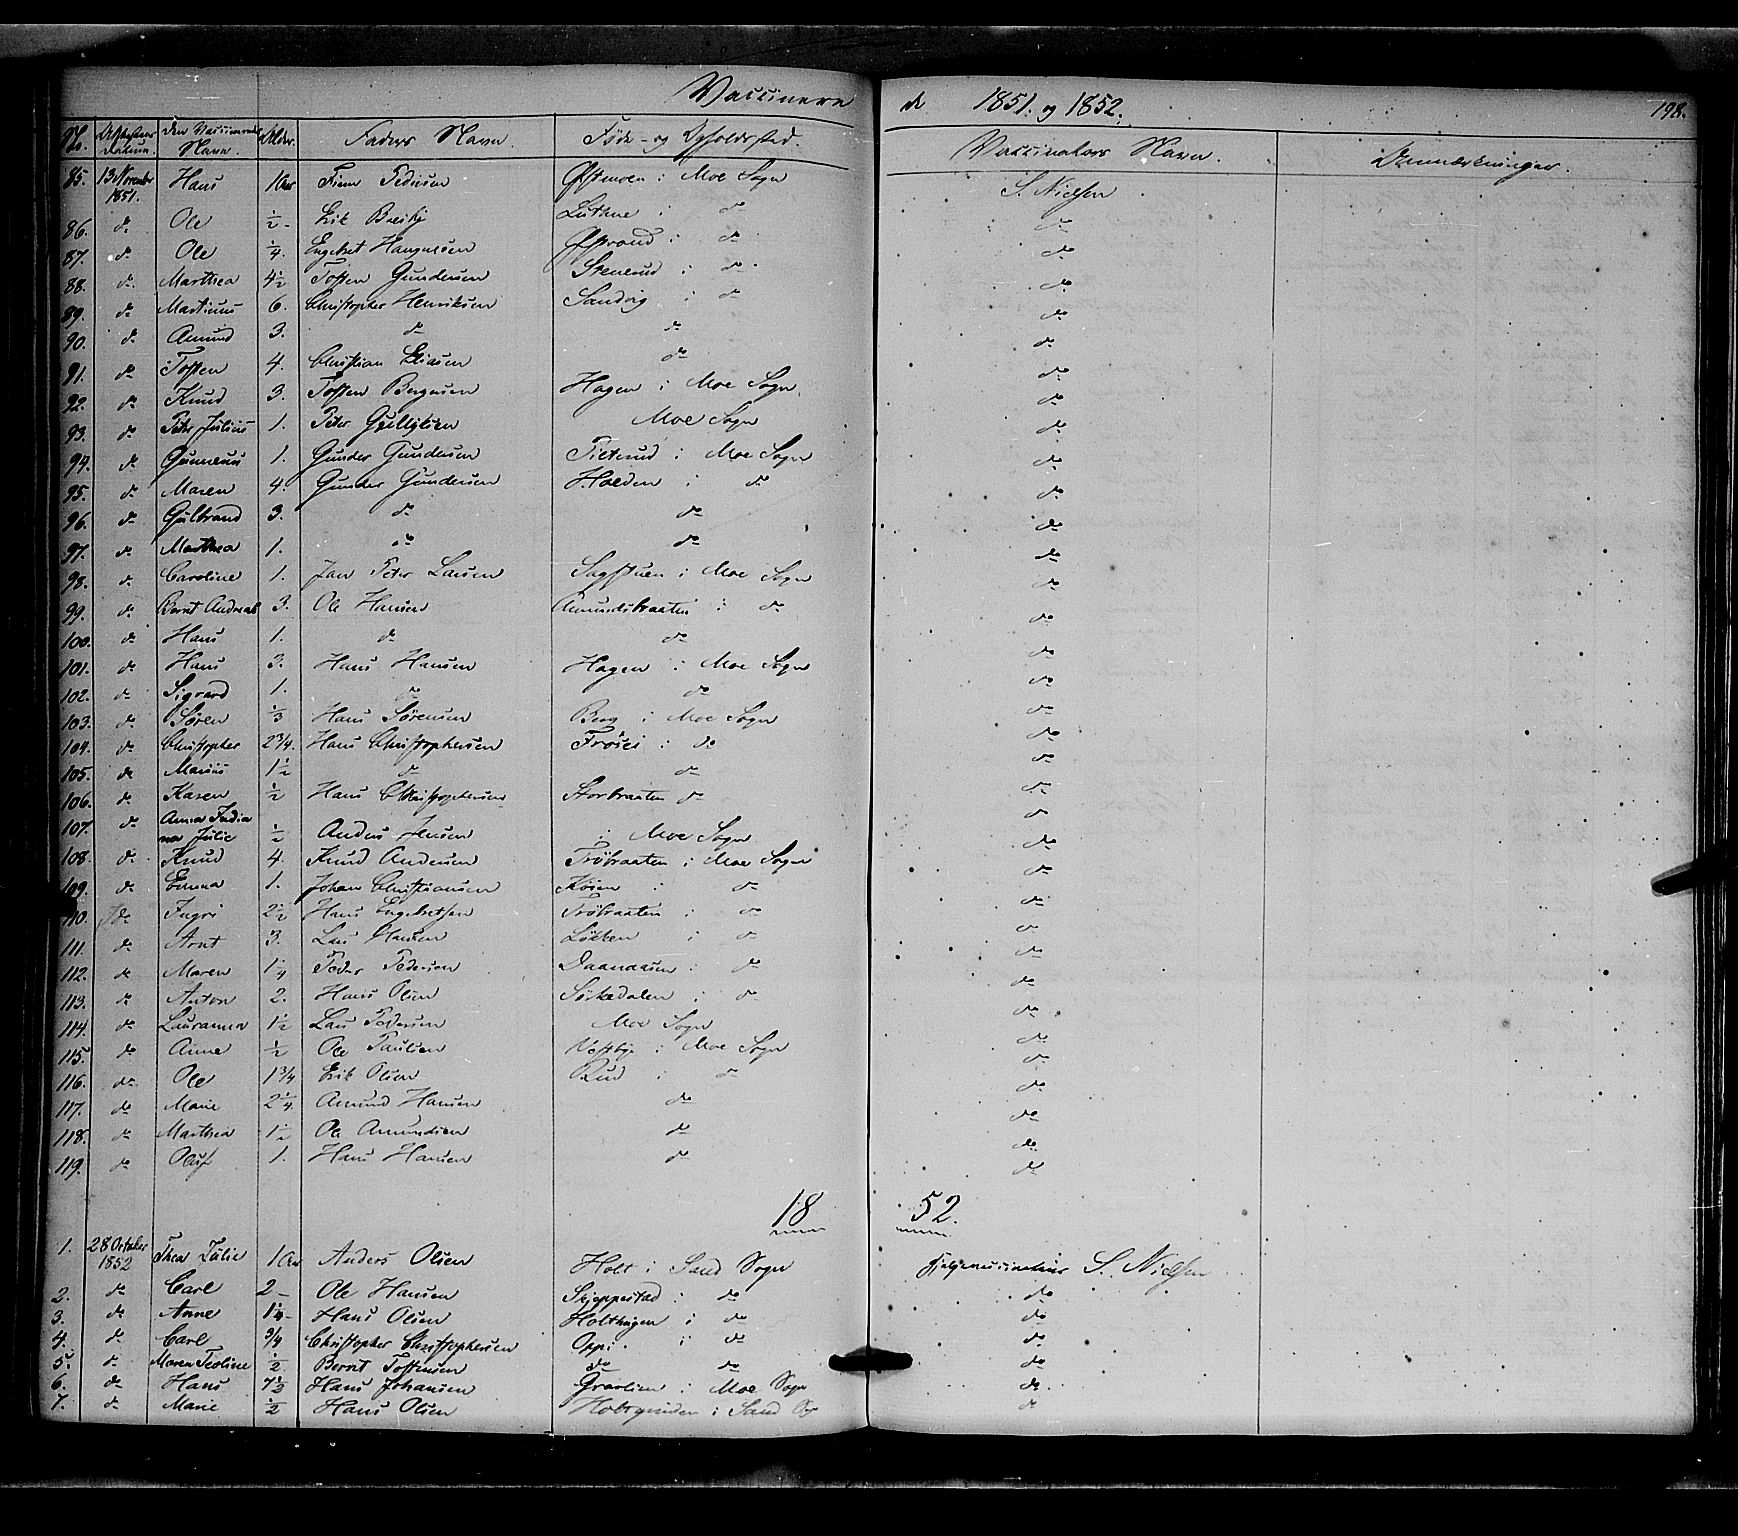 Vaccinerede 1851. og 1852. 198.
No. Attestens Datum. Den Vaccineredes Navn. Alder. Faders Navn. Føde- og Opholdssted. Vaccinators Navn. Anmærkninger.
85. 13 Novembr 1851. Hans 1 Aar Peder Moe Sogn S. Nielsen
86. do Ole ½ - Erik i do do
87. do Ole ¼. Engebret Østraad i do do
88. do Marthea 4½ Tosten Gundersen Stenerud i do do
89. do Martinus 6. Christopher Henriksen Sandvig i do do
90. do Amund 3. do do do
91. do Tosten 4. Christian do do
92. do Knud 3. Tosten Hagen i Moe Sogn do
93. do Peter Julius 1. Peter Moe Sogn do
94. do Gunnerus 1. Gunder Gundersen i Moe Sogn do
95. do Maren 4. Gunder Gundersen Holden i do do
96. do Gulbrand 3. do do do
97. do Marthea 1. do do do
98. do Caroline 1. Jan Peter Larsen Sagstuen i Moe Sogn do
99. do Bernt Andreas 3. Ole Hansen Amundsbraaten i do do
100. do Hans 1. do do do
101. do Hans 3. Hans Hansen Hagen i Moe Sogn do
102. do Sigvard 1. do do do
103. do Søren ⅓ Hans Sørensen Berg i Moe Sogn do
104. do Christopher 2¾. Hans Christophersen i do do
105. do Marius 1½ do do do
106. do Karen ½ Hans Christophersen Storbraaten do do
107. do Anna Indiana Julie ½ Anders Jensen i Moe Sogn do
108. do Knud 4. Knud Andersen Trøbraaten i Moe Sogn do
109. do Emma 1. Johan Christiansen i do do
110. do Ingri 2½ Hans Engebretsen Trøbraaten i do do
111. do Arnt 3. Lars Hansen Løkken i do do
112. do Maren 1¼ Peder Pedersen i do do
113. do Anton 2. Hans Olsen Sørkedalen i do do
114. do Lauranna 1½ Lars Pedersen Moe Sogn do
115. do Anne ½ Ole Paulsen Vestbye i Moe Sogn do
116. do Ole 1¾ Erik Olsen Rud i do do
117. do Marie 2¼. Amund Hansen do do
118. do Marthea 1½ Ole Amundsen do do
119. do Oluf 1. Hans Hansen do do
1852.
1. 28 October 1852 Thea Julie 1 Aar Anders Olsen Holt i Sand Sogn S. Nielsen
2. do Carl 2 - Ole Hansen Skjeppestad i do do
3. do Anne 1¼ - Hans Olsen i do do
4. do Carl ¾ Christopher Christophersen Oppi. i do do
5. do Maren Teoline ½ Bernt Tostensen do do do
6. do Hans 7½ Hans Johansen Gravlien i Moe Sogn do
7. do Marie ½ Hans Olsen i Sand Sogn do